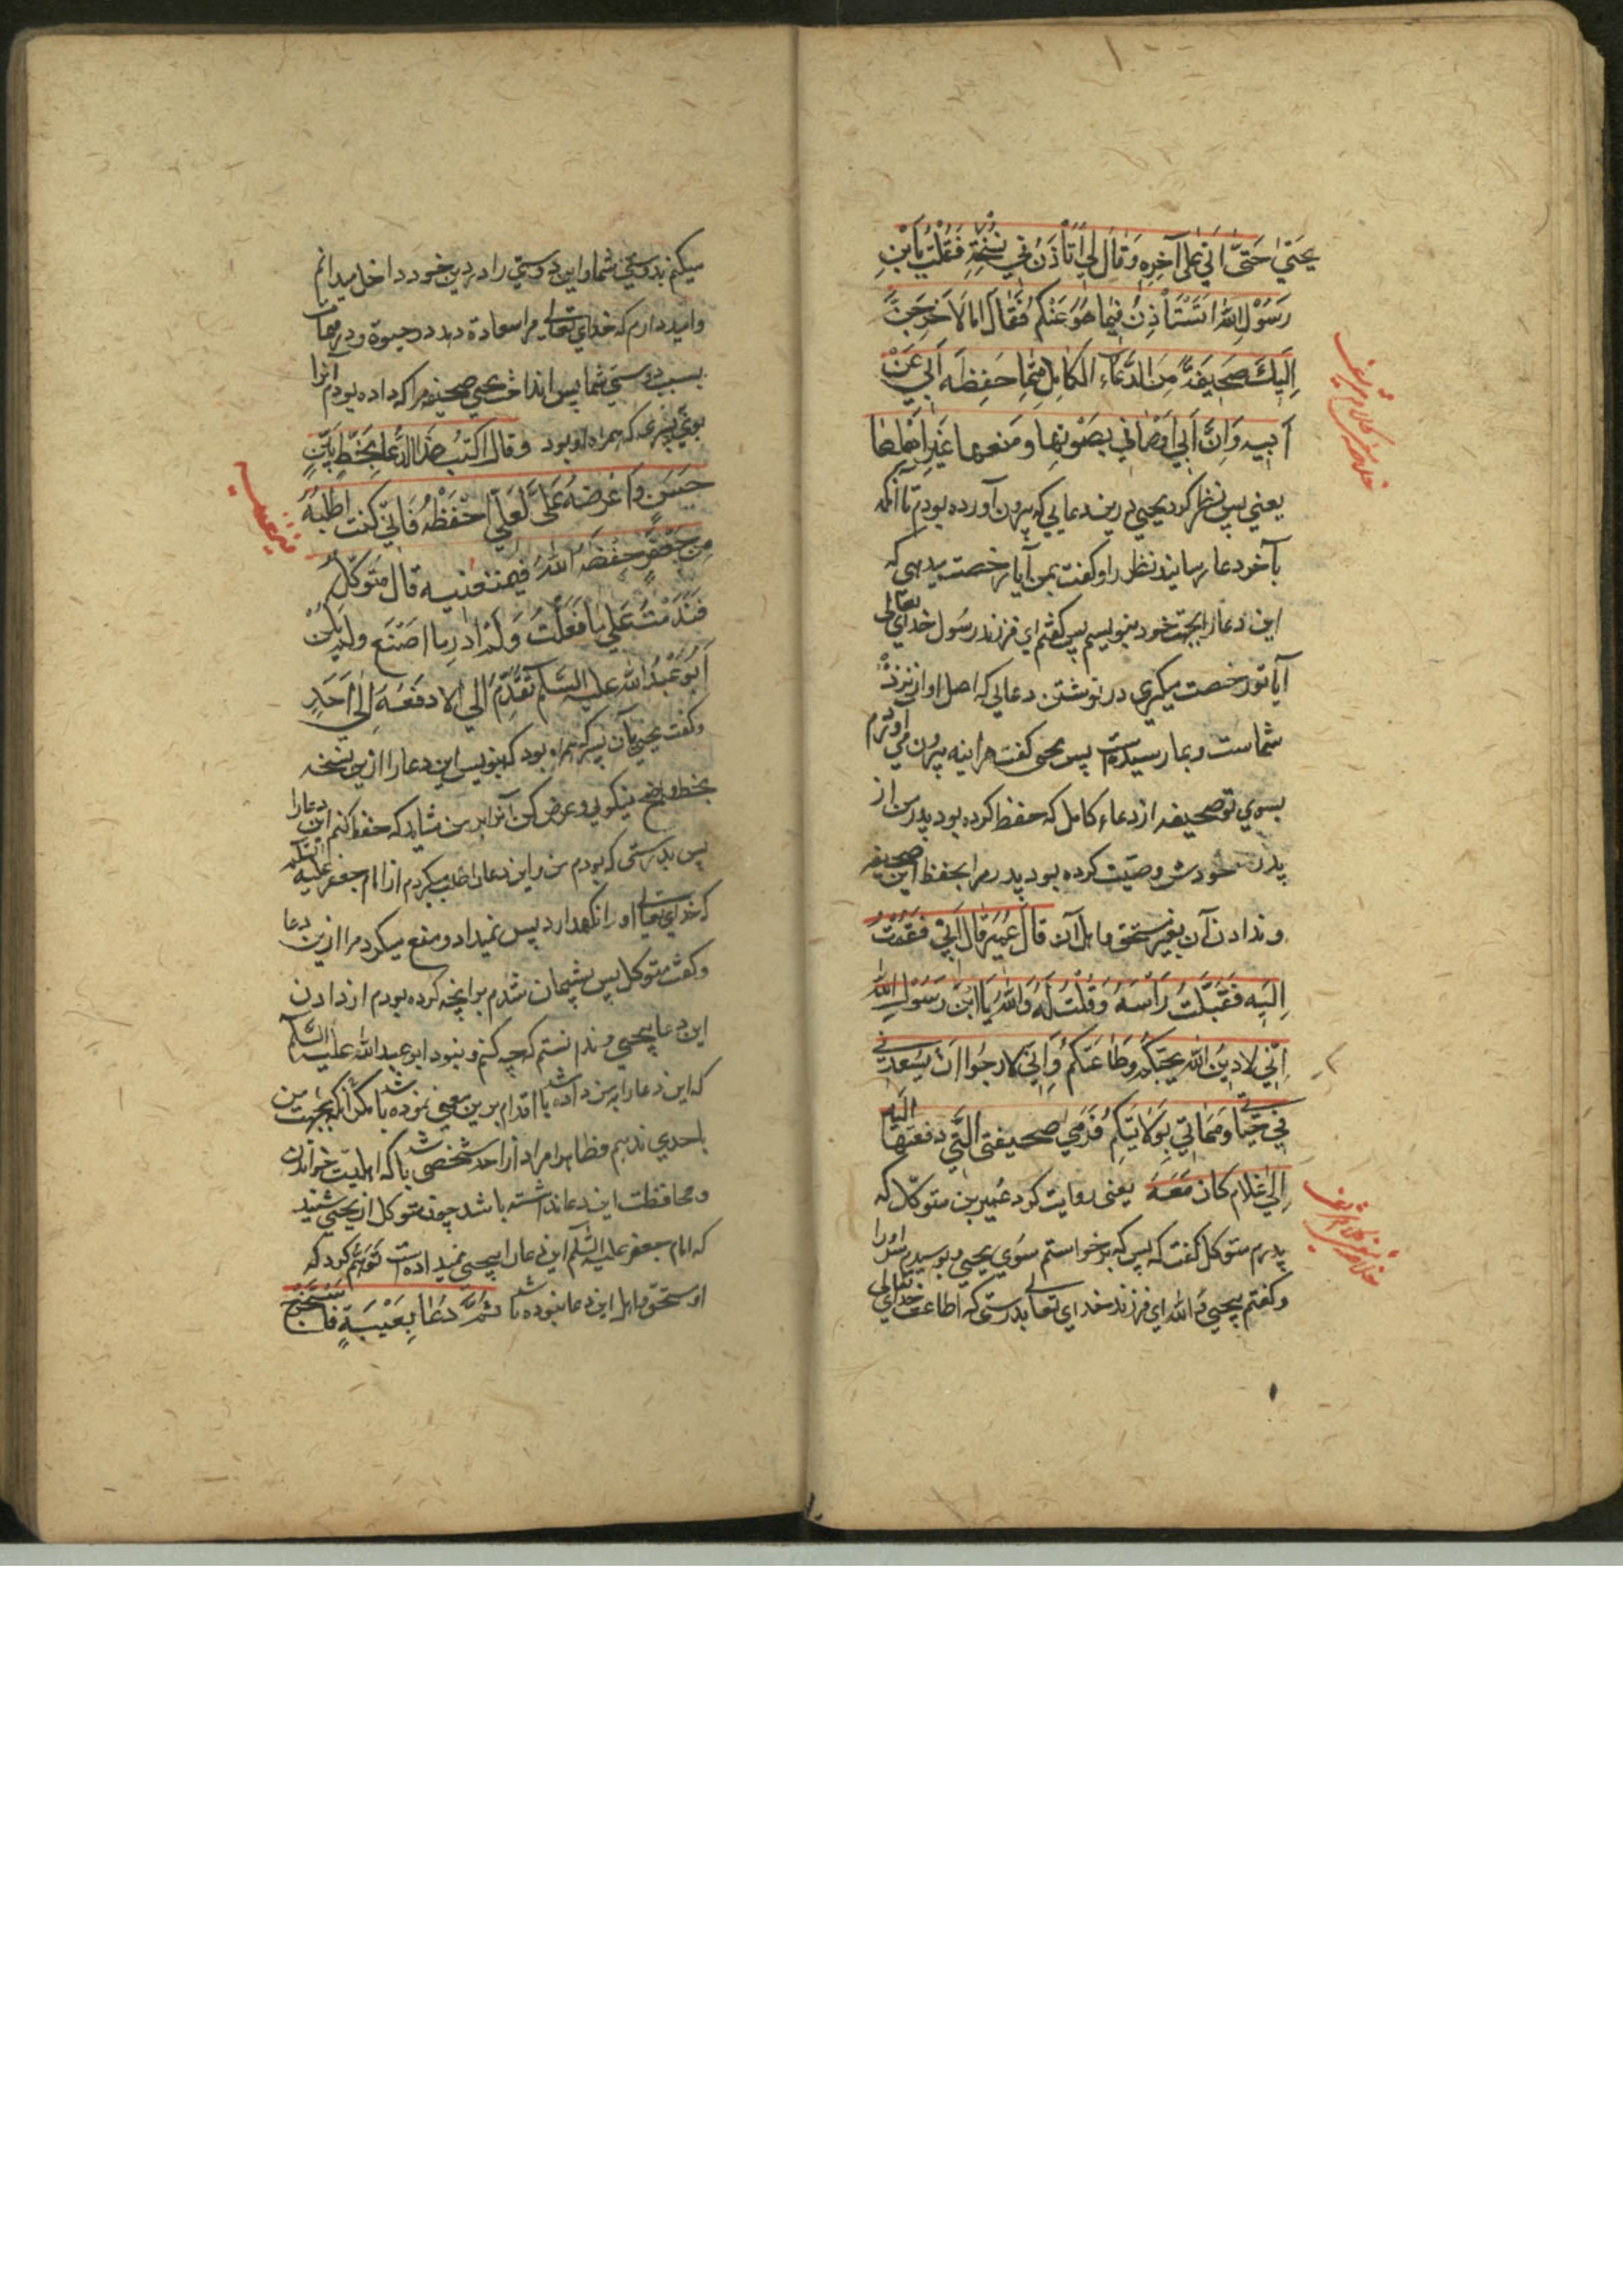 يحيى حتى اتى على آخره وقال لي اتأذن في نسخة فقلت يا بن
رسول الله اتستأذن فيما هو عنكم فقال اما لاخرجن
اليك صحيفة من الدعاء الكامل مما حفظه ابي عن
ابيه وان ابي اوصاني بصونها ومنعها غير اهلها
يعني پس نظر كرد يحيي درين دعايي كه بيرون آورده بودم تا آنكه
بآخر دعا رسانيد نظر را و گفت بمن آيا رخصت ميدهي كه
اين دعا را بجهت خود بنويسم پس گفتم اي فرزند رسول خداي تعالى
آيا تو رخصت ميگيري در نوشتن دعايي كه اصل او از نزد
شماست و بما رسيده است پس يحيى گفت هراينه بيرون مي آورم
بسوي تو صحيفه از دعاء كامل كه حفظ كرده بود پدر من از
پدر خودش وصيت كرده بود پدر مرا بحفظ اين صحيفه
و ندادن آن بغير مستحق و اهل آن قال عمير قال ابي فقمت
اليه فقبلت رأسه وقلت له والله يا ابن رسول الله
اني لادين الله بحبكم وطاعتكم واني لارجوا ان يسعدني
في حياتي ومماتي بولايتكم فرمى صحيفتي التي دفعتها اليه
الى غلام كان معه يعني روايت كرد عمير بن متوكل كه
پدرم متوكل گفت كه پس كه برخواستم سوي يحيي و بوسيدم سر او را
و گفتم بيحيي والله اي فرزند خداي تعالى بدرستي كه اطاعت خداي تعالى
ميكنم بدوستي شما و اين دوستي را در دين خود داخل ميدانم
و اميد دارم كه خداي تعالى مرا سعادة دهد در حيوة و در ممات
بسبب دوستي شما پس انداخت يحيي صحيفه مرا كه داده بودم آنرا
بوي پسري كه همراه او بود وقال اكتب هذا الدعا بخط بيّن
حسن واعرضه علي لعلي احفظه فاني كنت اطلبه
من جعفر حفظه الله فيمنعنيه قال متوكل
فندمت على ما فعلت ولم ادر ما اصنع ولم يكن
ابو عبد الله عليه السلم تقدم الي الا ادفعه الى احد
و گفت يحيي بآن پسر كه همراه بود كه بنويس اين دعا را ازين نسخه
بخط واضح نيكويي و عرض كن آنرا بر من شايد كه حفظ كنم اين دعا را
پس بدرستي كه بودم من و اين دعا را طلب ميكردم از امام جعفر عليه السلم
كه خداي تعالى او را نگهدارد پس نميداد و منع ميكرد مرا ازين دعا
و گفت متوكل پس پشيمان شدم بر آنچه كرده بودم از دادن
اين دعا بيحيي و ندانستم كه چه كنم و نبود ابو عبد الله عليه السلم
كه اين دعا را بمن داده باشد اقدام برين معني نموده باشد مگر آنكه بجهت من
باحدي ندهم و ظاهرا مراد از احد شخصي باشد كه اهليت خواندن
و محافظت اين دعا نداشته باشد چون متوكل از يحيي شنيد
كه امام جعفر عليه السلم اين دعا را بيحيي نميداده است توهم كرد كه
او مستحق و اهل اين دعا نبوده باشد ثم دعا بعيبة فاستخرج